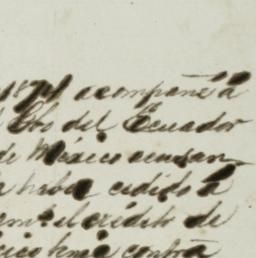 1874 acompañé á
Gbo del Ecuador
de México acusan
haber cedido á
el crédito de
contra